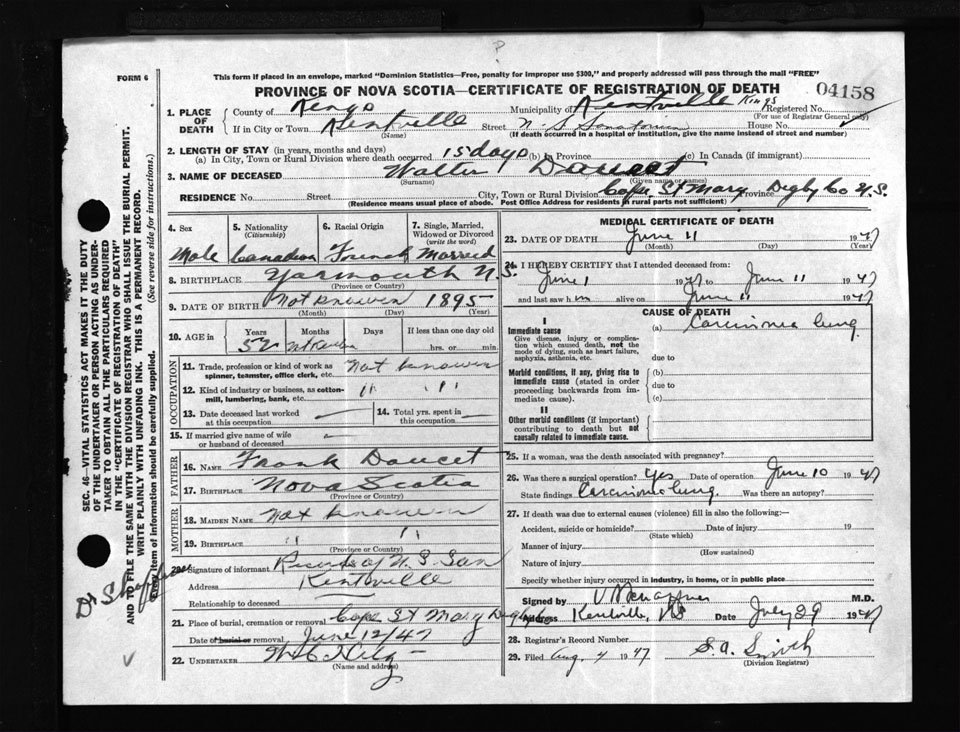 P
FORM 6
This form if placed in an envelope, marked "Dominion Statistics—Free, penalty for improper use $300," and properly addressed will pass through the mail "FREE"
PROVINCE OF NOVA SCOTIA—CERTIFICATE OF REGISTRATION OF DEATH
04158
1. PLACE OF DEATH
County of Kings
Municipality of Kentville Kings
Registered No.
(For use of Registrar General only)
If in City or Town Kentville
(Name)
Street N.S. Sanatorium
House No.
(If death occurred in a hospital or institution, give the name instead of street and number)
2. LENGTH OF STAY (in years, months and days)
(a) In City, Town or Rural Division where death occurred 15 days (b) in Province (c) In Canada (if immigrant)
3. NAME OF DECEASED Walter Doucet
(Surname) (Given name or names)
RESIDENCE No. Street City, Town or Rural Division Cape St Mary Province Digby Co N.S.
(Residence means usual place of abode. Post Office Address for residents in rural parts not sufficient)
4. Sex
5. Nationality (Citizenship)
6. Racial Origin
7. Single, Married, Widowed or Divorced (write the word)
Male Canadian French Married
8. BIRTHPLACE Yarmouth N.S.
(Province or Country)
9. DATE OF BIRTH Not known 1895
(Month) (Day) (Year)
10. AGE in
Years Months Days If less than one day old
52 hrs. or min.
OCCUPATION
11. Trade, profession or kind of work as spinner, teamster, office clerk, etc. Not known
12. Kind of industry or business, as cotton-mill, lumbering, bank, etc. " "
13. Date deceased last worked at this occupation
14. Total yrs. spent in this occupation
15. If married give name of wife or husband of deceased
FATHER
16. NAME Frank Doucet
17. BIRTHPLACE Nova Scotia
(Province or Country)
MOTHER
18. MAIDEN NAME Not known
19. BIRTHPLACE " "
(Province or Country)
20. Signature of informant Records of N.S. San
Address Kentville
Relationship to deceased
21. Place of burial, cremation or removal Cape St Mary Digby
Date of burial or removal June 12/47
22. UNDERTAKER
(Name and address)
MEDICAL CERTIFICATE OF DEATH
23. DATE OF DEATH June 11 1947
(Month) (Day) (Year)
24. I HEREBY CERTIFY that I attended deceased from:
June 1 1947 to June 11 1947
and last saw him alive on June 11 1947
CAUSE OF DEATH
I
Immediate cause
Give disease, injury or complication which caused death, not the mode of dying, such as heart failure, asphyxia, asthenia, etc.
(a) Carcinoma lung
due to
Morbid conditions, if any, giving rise to immediate cause (stated in order proceeding backwards from immediate cause).
(b)
due to
(c)
II
Other morbid conditions (if important) contributing to death but not causally related to immediate cause.
25. If a woman, was the death associated with pregnancy?
26. Was there a surgical operation? Yes Date of operation June 10 1947
State findings Carcinoma lung. Was there an autopsy?
27. If death was due to external causes (violence) fill in also the following:—
Accident, suicide or homicide? Date of injury 19
(State which)
Manner of injury
(How sustained)
Nature of injury
Specify whether injury occurred in industry, in home, or in public place
Signed by M.D.
Address Kentville, NS Date July 29 1947
28. Registrar's Record Number
29. Filed Aug. 4 1947 S.A. Smith
(Division Registrar)
SEC. 46—VITAL STATISTICS ACT MAKES IT THE DUTY OF THE UNDERTAKER OR PERSON ACTING AS UNDERTAKER TO OBTAIN ALL THE PARTICULARS REQUIRED IN THE "CERTIFICATE OF REGISTRATION OF DEATH" AND TO FILE THE SAME WITH THE DIVISION REGISTRAR WHO SHALL ISSUE THE BURIAL PERMIT.
WRITE PLAINLY WITH UNFADING INK. THIS IS A PERMANENT RECORD.
Every item of information should be carefully supplied. (See reverse side for instructions.)
Dr